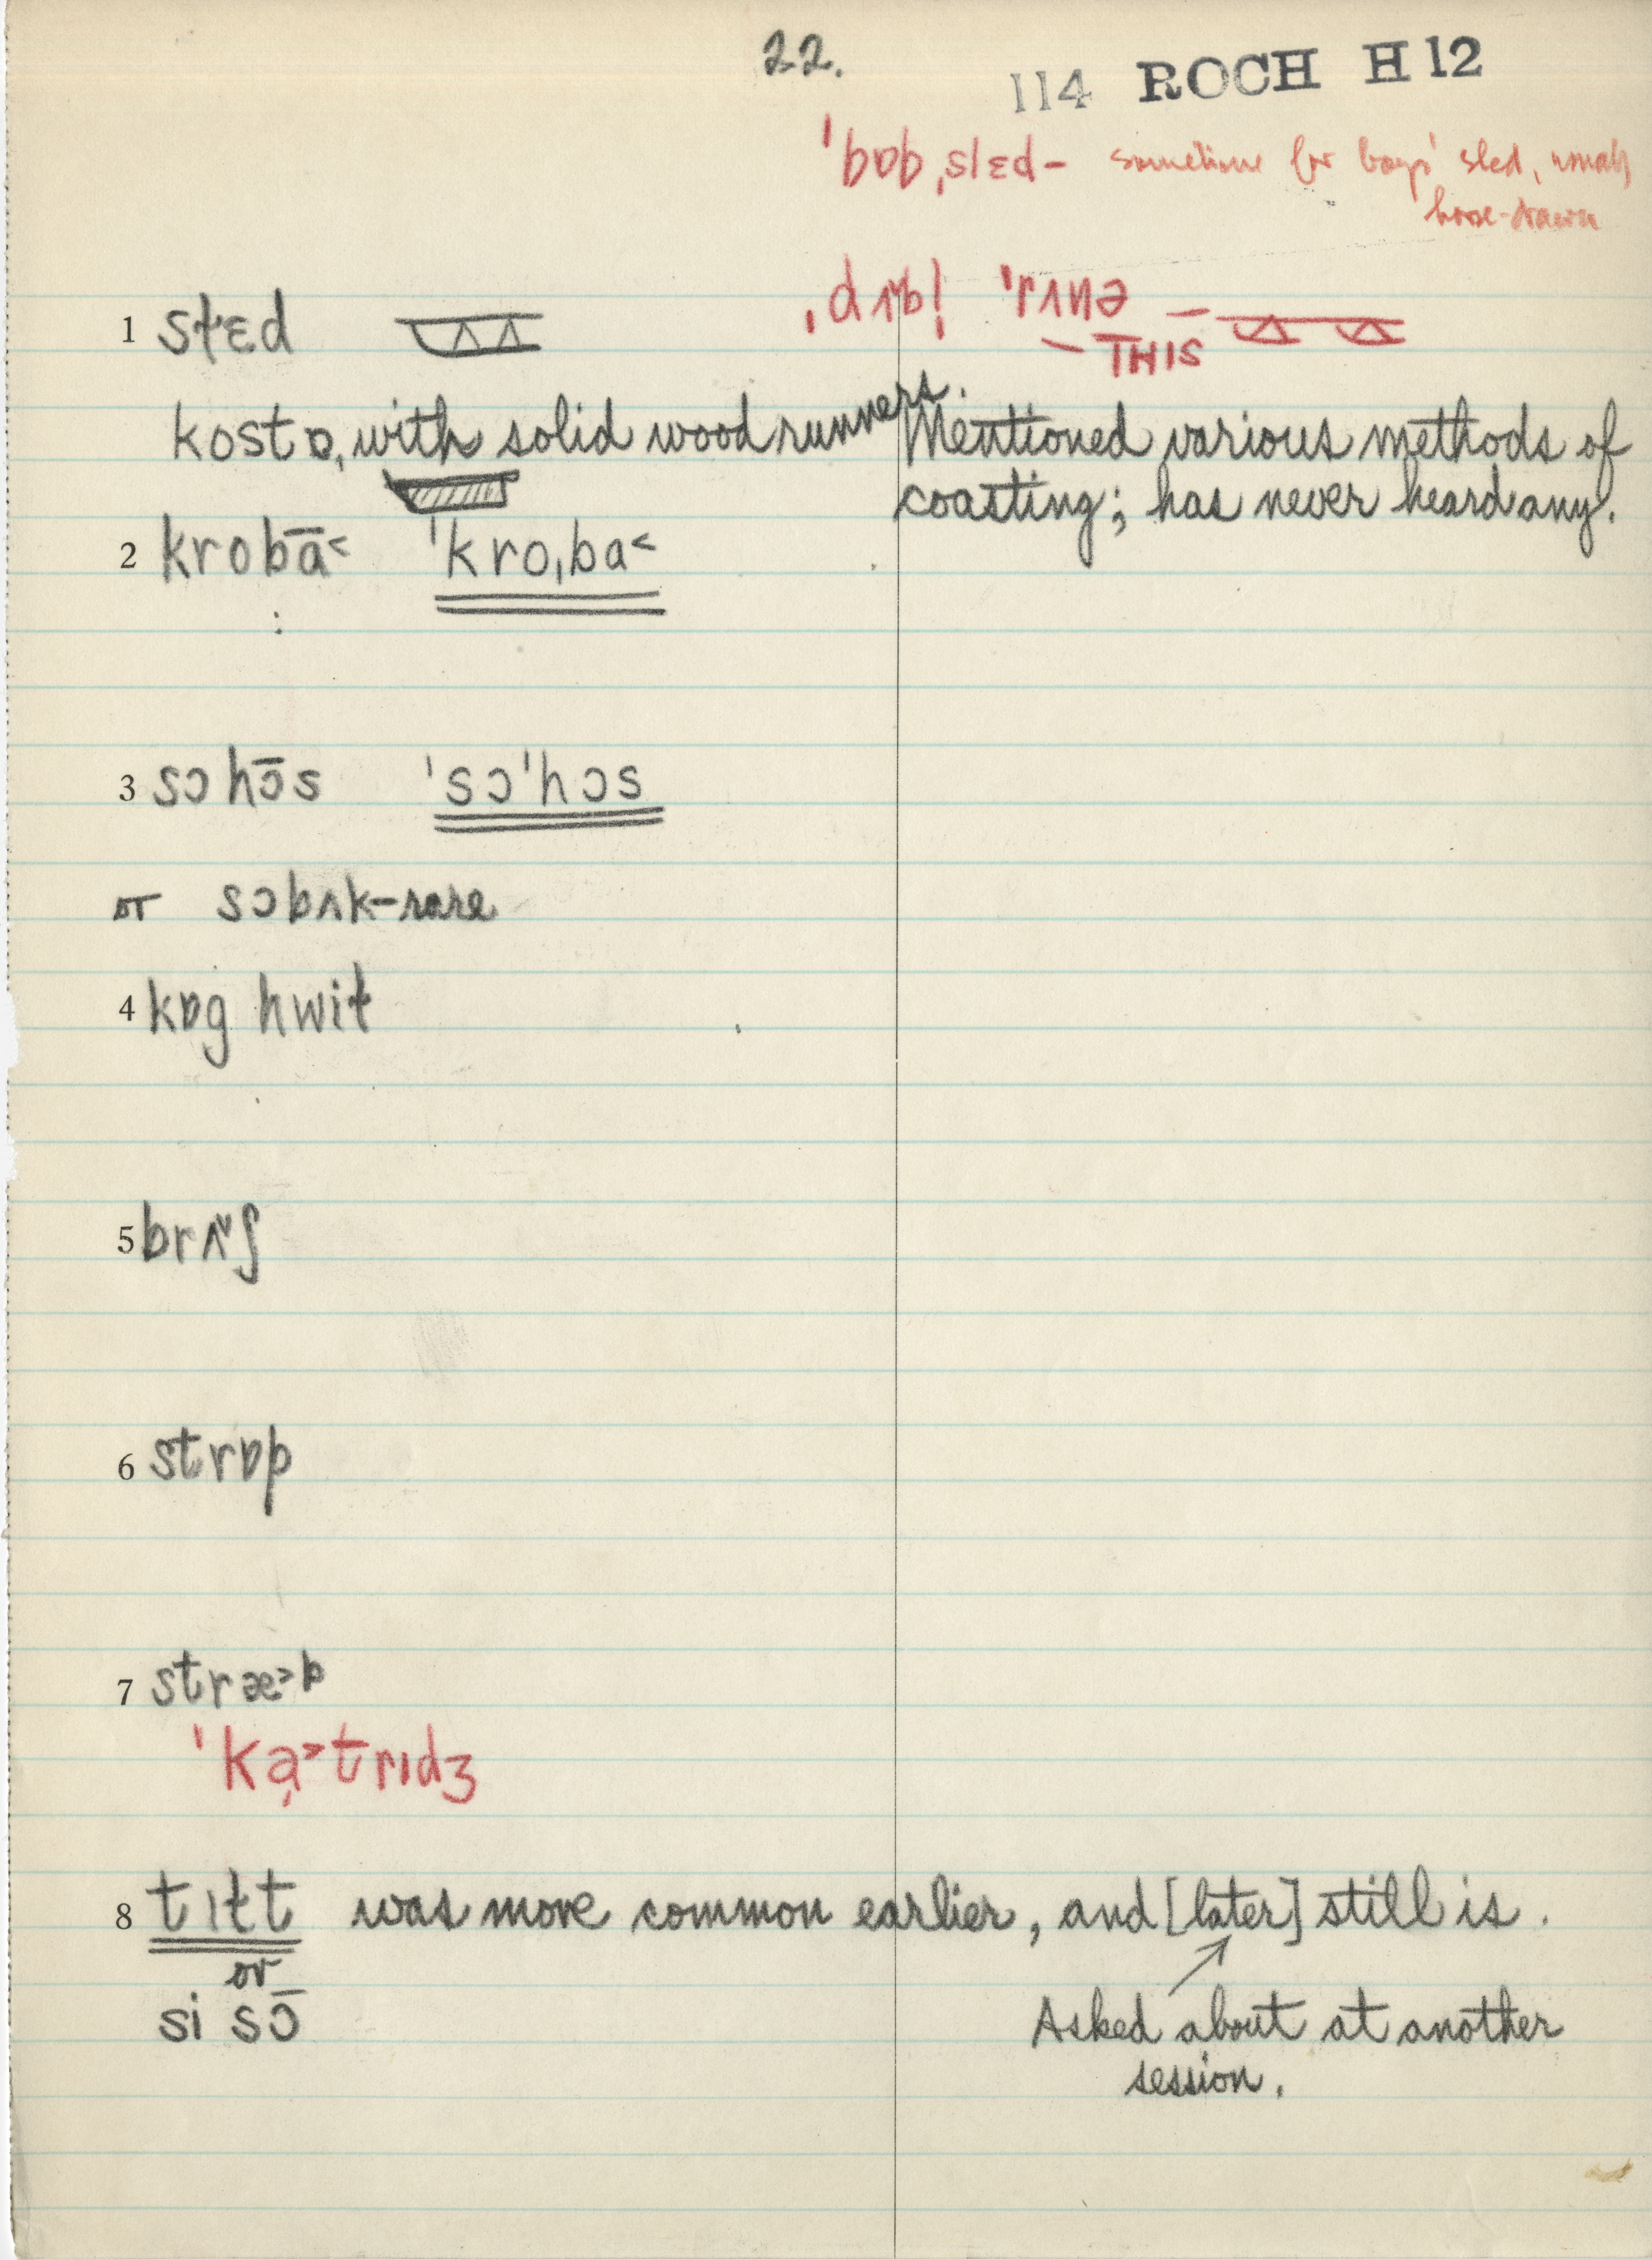 22.
114 ROCH H 12
ˈbɒbˌslɛd – sometime for boys' sled, usually
horse-drawn
1 sɫɛd ˌdʌb!ˈrʌnə –
– THIS
kostɒ, with solid wood runners. Mentioned various methods of
coasting; has never heard any.
2 krobā˂ ˈkroˌba˂
3 sɔ hɔ̄s ˈsɔˈhɔs
or sɔbʌk – rare
4 kɒg hwiɫ
5 brʌ˅ʃ
6 strɒp
7 stræ˃p
ˈka̝˃trɪdʒ
8 tɪɫt was more common earlier, and [later] still is.
or
si sɔ̄ Asked about at another
session.